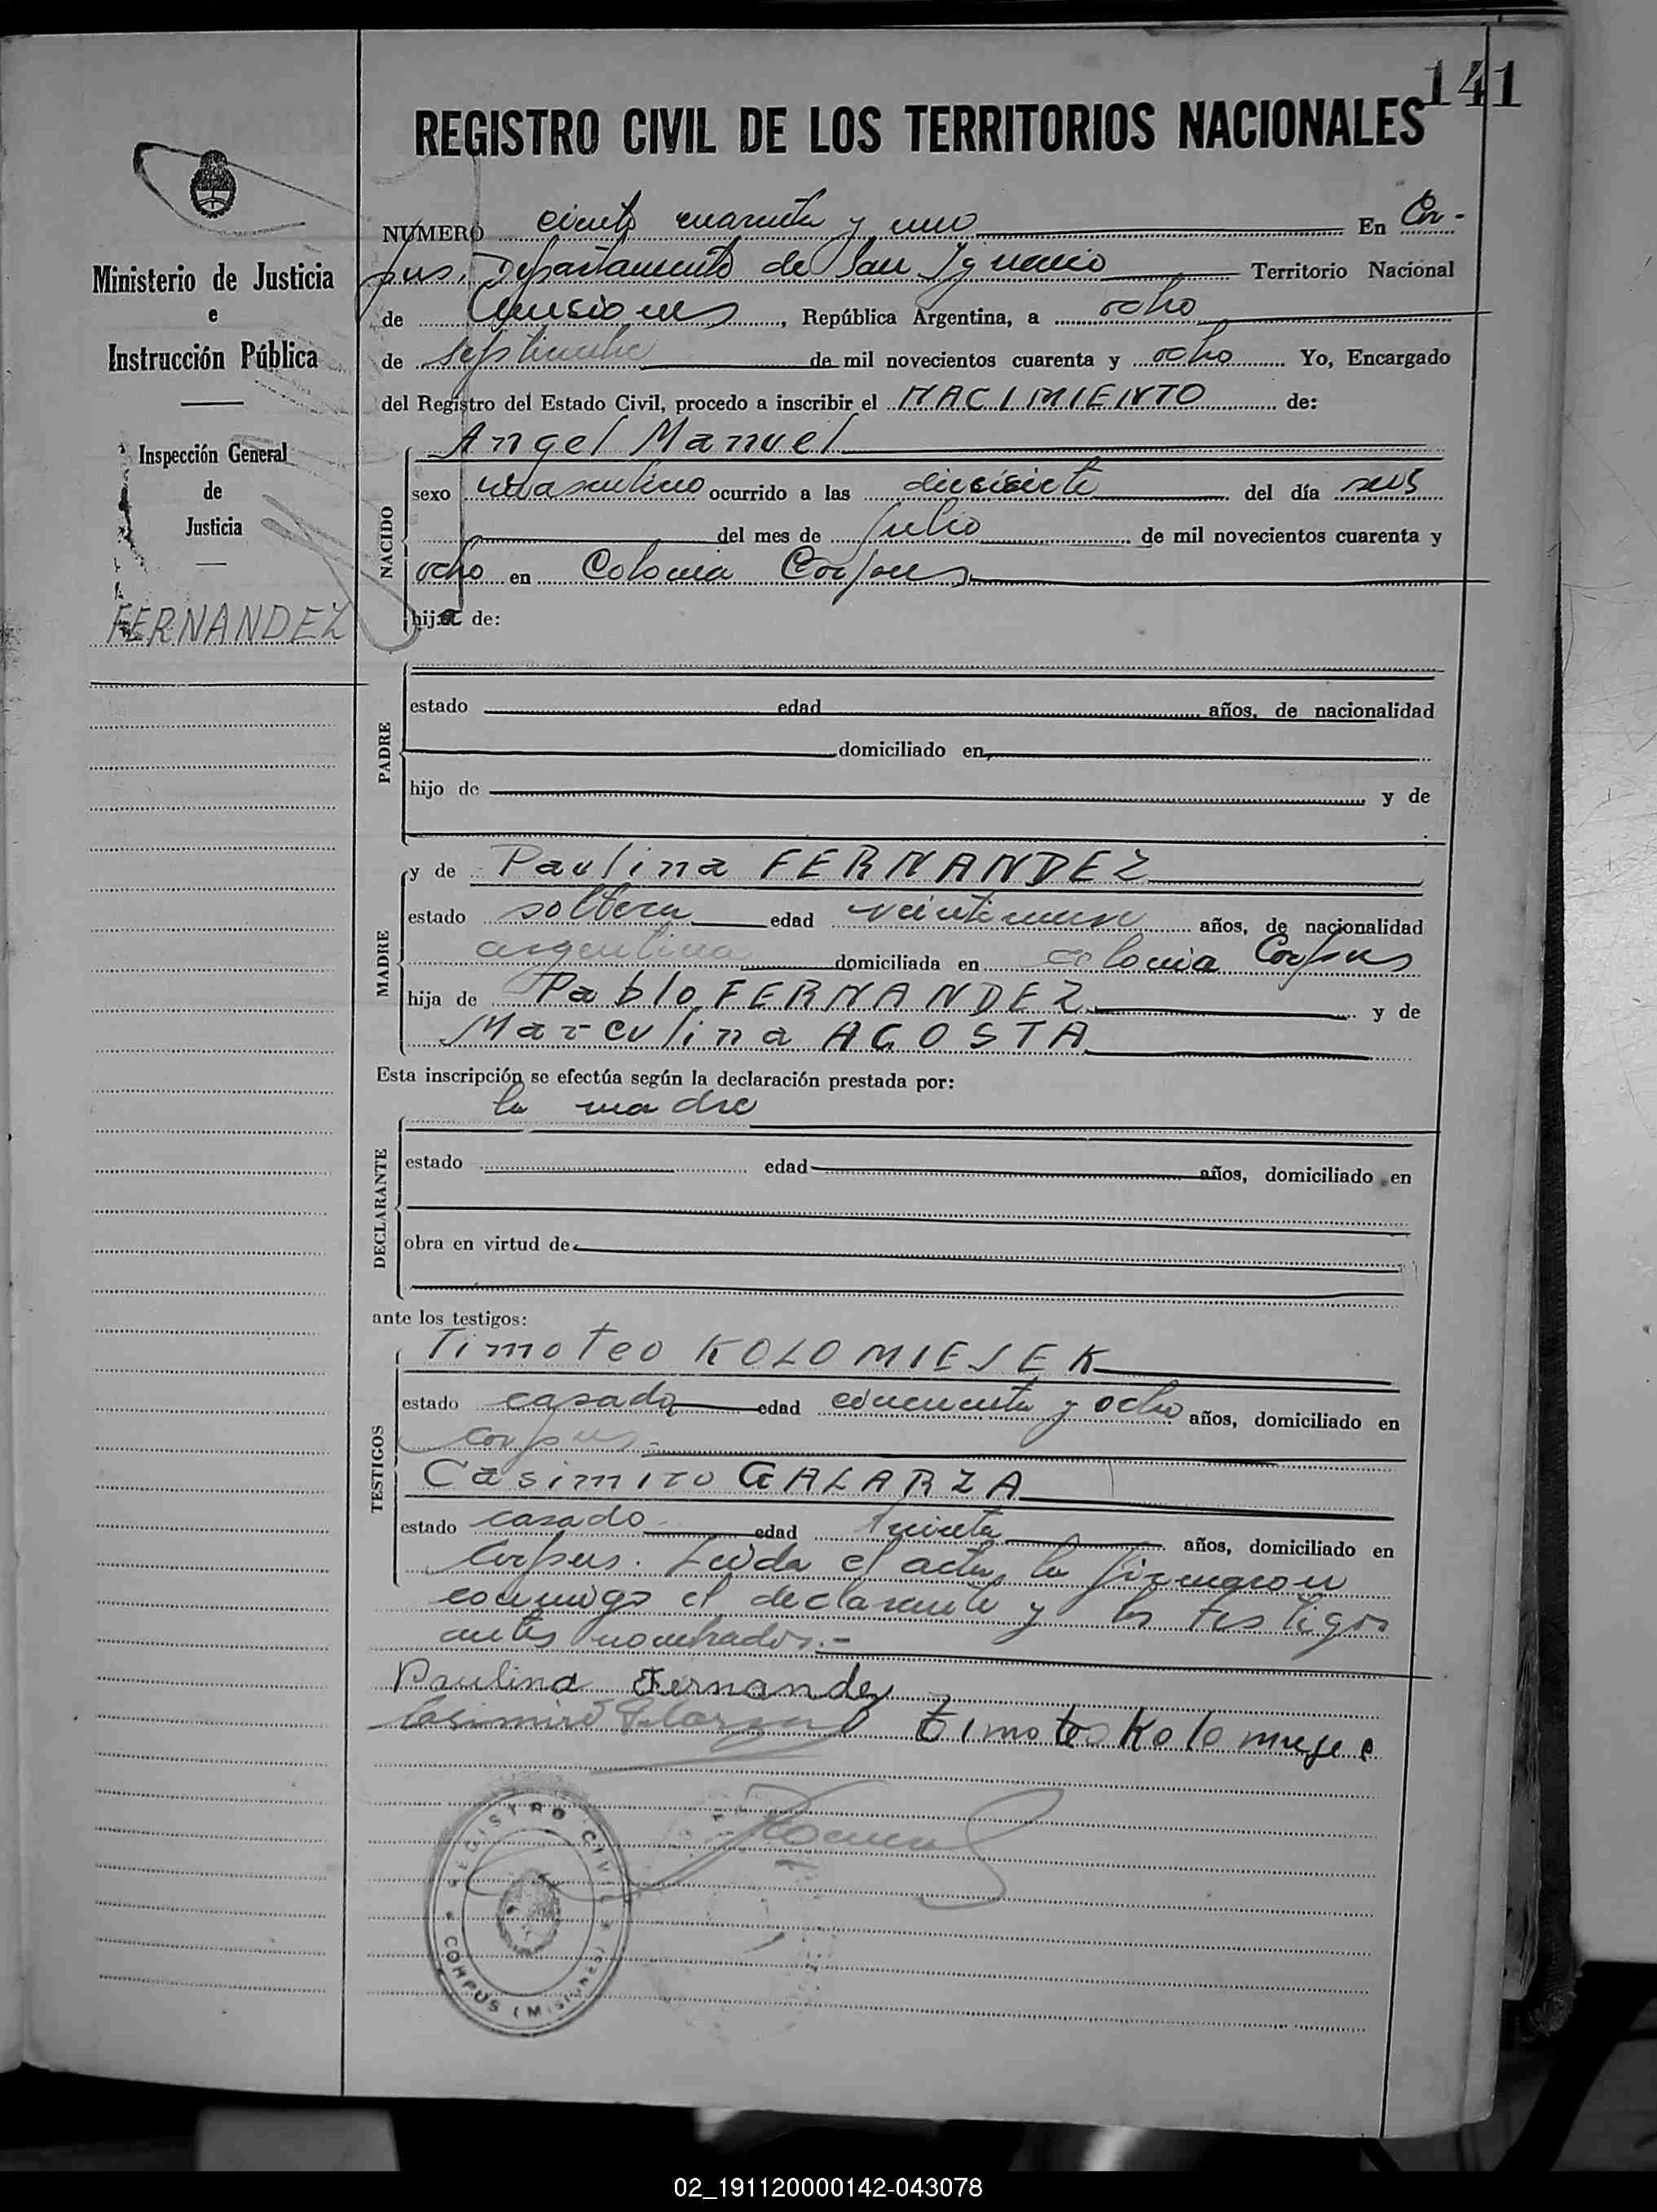 141
REGISTRO CIVIL DE LOS TERRITORIOS NACIONALES
Ministerio de Justicia
e
Instrucción Pública
Inspección General
de
Justicia
FERNANDEZ
NUMERO ciento cuarenta y uno En Cor-
pus, Departamento de San Ignacio Territorio Nacional
de Misiones, República Argentina, a ocho
de septiembre de mil novecientos cuarenta y ocho Yo, Encargado
del Registro del Estado Civil, procedo a inscribir el NACIMIENTO de:
NACIDO
Angel Manuel
sexo masculino ocurrido a las diecisiete del día seis
del mes de julio de mil novecientos cuarenta y
ocho en Colonia Corpus
hija de:
PADRE
estado edad años, de nacionalidad
domiciliado en
hijo de y de
MADRE
y de Paulina FERNANDEZ
estado soltera edad años, de nacionalidad
argentina domiciliada en colonia Corpus
hija de Pablo FERNANDEZ y de
Marculina ACOSTA
Esta inscripción se efectúa según la declaración prestada por:
DECLARANTE
la madre
estado edad años, domiciliado en
obra en virtud de
ante los testigos:
TESTIGOS
Timoteo KOLOMIESEK
estado casado edad cincuenta y ocho años, domiciliado en
Corpus.-
Casimiro GALARZA
estado casado edad treinta años, domiciliado en
Corpus. Leida el acta, la firmaron
conmigo el declarante y los testigos
antes nombrados.-
Paulina Fernandez
Casimiro Galarza Timoteo Kolomyje
REGISTRO CIVIL
CORPUS (MISIONES)
02_191120000142-043078